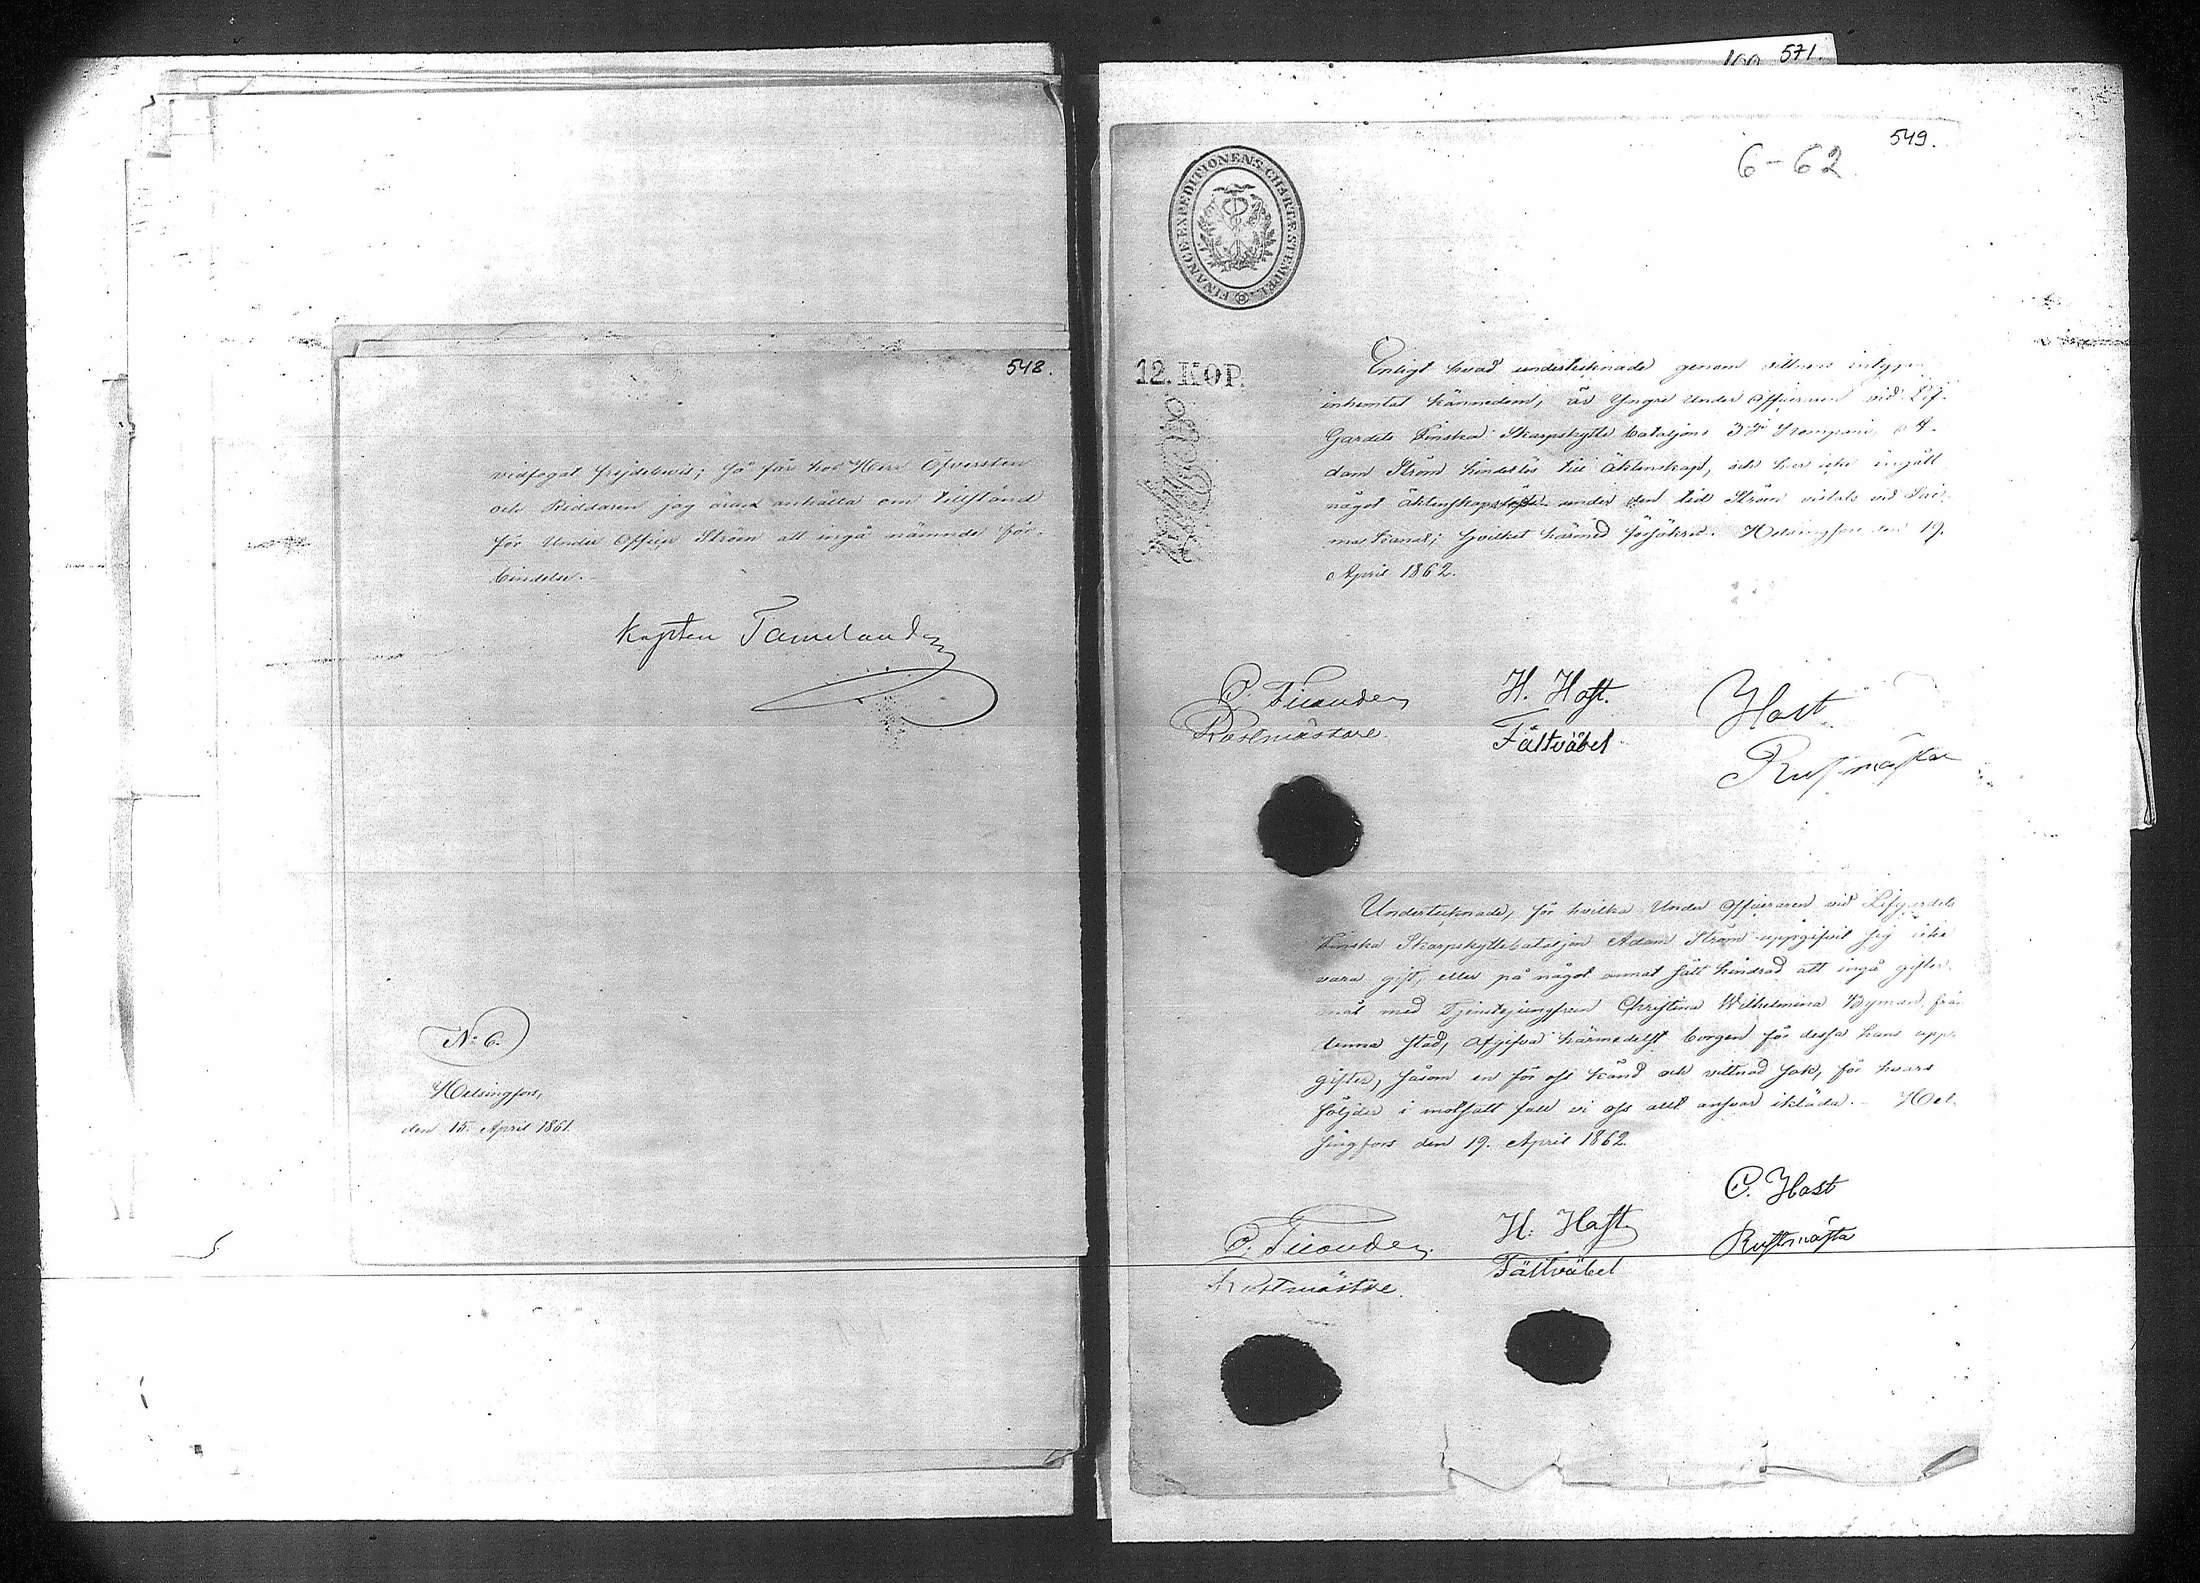 548.
vidfogat frejdebevis; så får hos Herr Öfversten
och Riddaren jag äran anhålla om tillstånd
för Under Officer Ström att ingå nämnde för-
bindelse.
No 6.
Helsingfors,
den 15. April 1861.
571.
549.
6-62
FINANCE-EXPEDITIONENS CHARTÆ STEMPEL
12. KOP.
Enligt hvad undertecknade genom vittnens intygan
inhemtat kännedom, är Yngre Under Officeren vid Lif-
Gardets Finska Skarpskytte bataljons 3dje Kompani, A-
dam Ström hinderlös till äktenskap, och har icke ingått
något äktenskapslöfte under den tid Ström vistats vid Sai-
ma Kanal; hvilket härmed försäkras. Helsingfors den 19.
April 1862.
H. Haft.
Fältväbel
Hast
Rustmästare
Undertecknade, för hvilka Under Officeraren vid Lifgardets
Finska Skarpskyttebataljon Adam Ström uppgifvit sig icke
vara gift, eller på något annat sätt hindrad att ingå gifter-
mål med Tjenstejungfrun Christina Wilhelmina Byman från
denna stad, afgifva härmedelst borgen för dessa hans upp-
gifter, såsom en för oss känd och vittnad sak, för hvars
följder i motsatt fall vi oss allt ansvar ikläda. - Hel-
singfors den 19. April 1862.
C. Hast
H. Haft
Rustmästa
Fältväbel